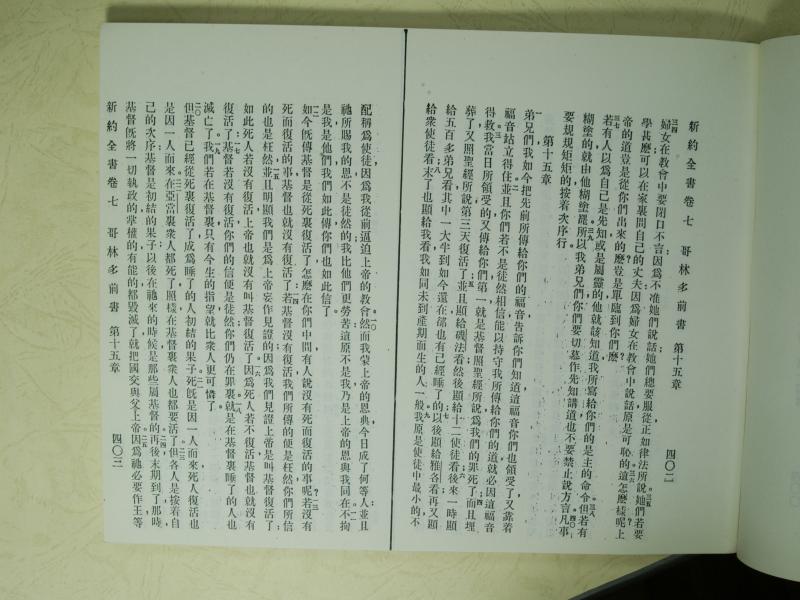 新約全書卷七 哥林多前書 第十五章 四〇二
婦女在教會中要閉口不言因為不准她們說話她們總要服從正如律法所說她們若要
學甚麼可以在家裏問自己的丈夫因為婦女在教會中說話原是可恥的道怎麼樣呢上
帝的道豈是從你們出來的麼豈是單臨到你們麼
若有人以為自己是先知或是屬靈的他就該知道我所寫給你們的是主的命令但若有
糊塗的就由他糊塗罷所以我弟兄們你們要切慕作先知講道也不要禁止說方言凡事
要規規矩矩的按着次序行
第十五章
弟兄們我如今把先前所傳給你們的福音告訴你們知道這福音你們也領受了又靠着
福音站立得住並且你們若不是徒然相信能以持守我所傳給你們的道就必因這福音
得救我當日所領受的又傳給你們第一就是基督照聖經所說為我們的罪死了而且埋
葬了又照聖經所說第三天復活了並且顯給磯法看然後顯給十二使徒看後來一時顯
給五百多弟兄看其中一大半到如今還在卻也有已經睡了的以後顯給雅各看再又顯
給衆使徒看末了也顯給我看我如同未到產期而生的人一般我原是使徒中最小的不
配稱為使徒因為我從前逼迫上帝的教會然而我蒙上帝的恩典今日成了何等人並且
祂所賜我的恩不是徒然的我比他們更勞苦這原不是我乃是上帝的恩與我同在不拘
是我是他們我們如此傳你們也如此信了
如今旣傳基督是從死裏復活了怎麼在你們中間有人說沒有死而復活的事呢若沒有
死而復活的事基督也就沒有復活了若基督沒有復活我們所傳的便是枉然你們所信
的也是枉然並且明顯我們是為上帝妄作見證的因為我們見證上帝是叫基督復活了
如此死人若沒有復活上帝也就沒有叫基督復活了因為死人若不復活基督也就沒有
復活了基督若沒有復活你們的信便是徒然你們仍在罪裏就是在基督裏睡了的人也
滅亡了我們若在基督裏只有今生的指望就比衆人更可憐了
但基督已經從死裏復活了成為睡了的人初結的果子死旣是因一人而來死人復活也
是因一人而來在亞當裏衆人都死了照樣在基督裏衆人也都要活了但各人是按着自
己的次序基督是初結的果子以後在祂來的時候是那些屬基督的再後末期到了那時
基督旣將一切執政的掌權的有能的都毀滅了就把國交與父上帝因為祂必要作王等
新約全書卷七 哥林多前書 第十五章 四〇三